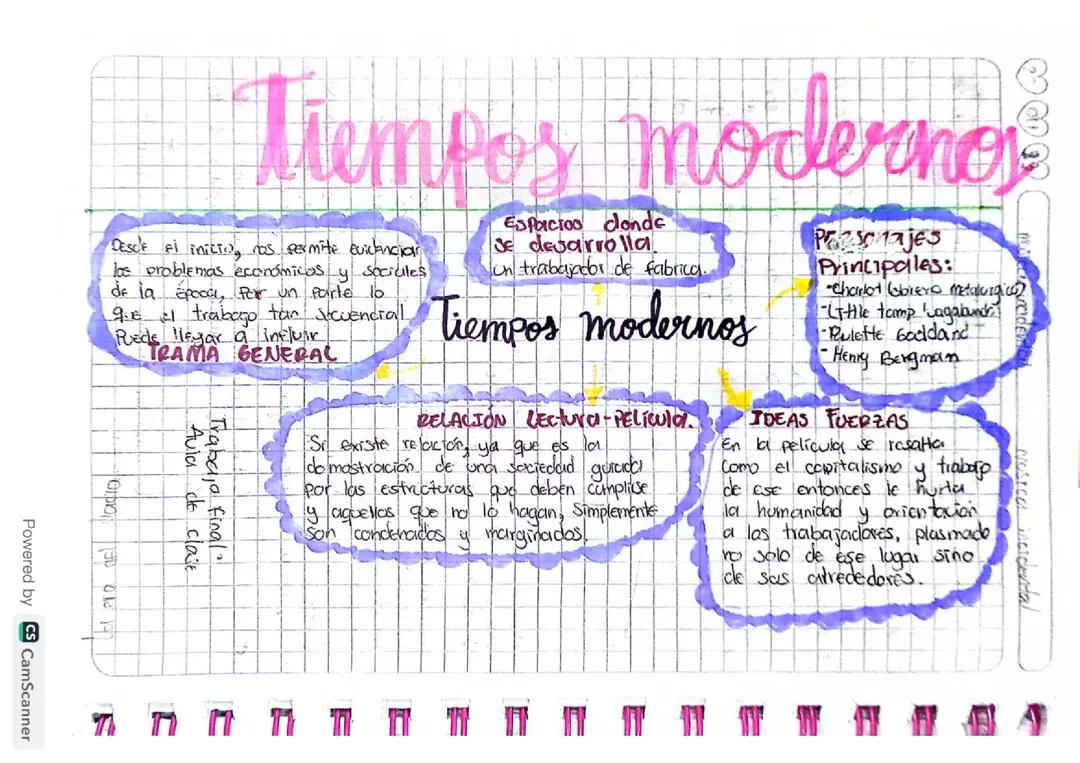 Tiempos modernos
Desde el inicio, nos permite evidenciar
los problemas económicos y sociales
de la época, por un parte lo
que el trabajo tan secuencial
Puede llegar a influir
TRAMA GENERAL
Espacios donde
se desarrolla.
un trabajador de fabrica.
Personajes
Principales:
-Charlot (obrero metalurgico)
-Little tamp (vagabundo)
-Paulette Goddard
-Henry Bergman
Tiempos modernos
RELACIÓN Lectura-Película.
Si existe relación, ya que es la
demostración de una sociedad guiada
por las estructuras que deben cumplirse
y aquellos que no lo hagan, simplemente
son condenados y marginados.
IDEAS FUERZAS
En la película se resalta
como el capitalismo y trabajo
de ese entonces le hurta
la humanidad y orientación
a los trabajadores, plasmado
no solo de ese lugar sino
de sus alrededores.
Trabajo final:
Aula de clase
Powered by CS CamScanner